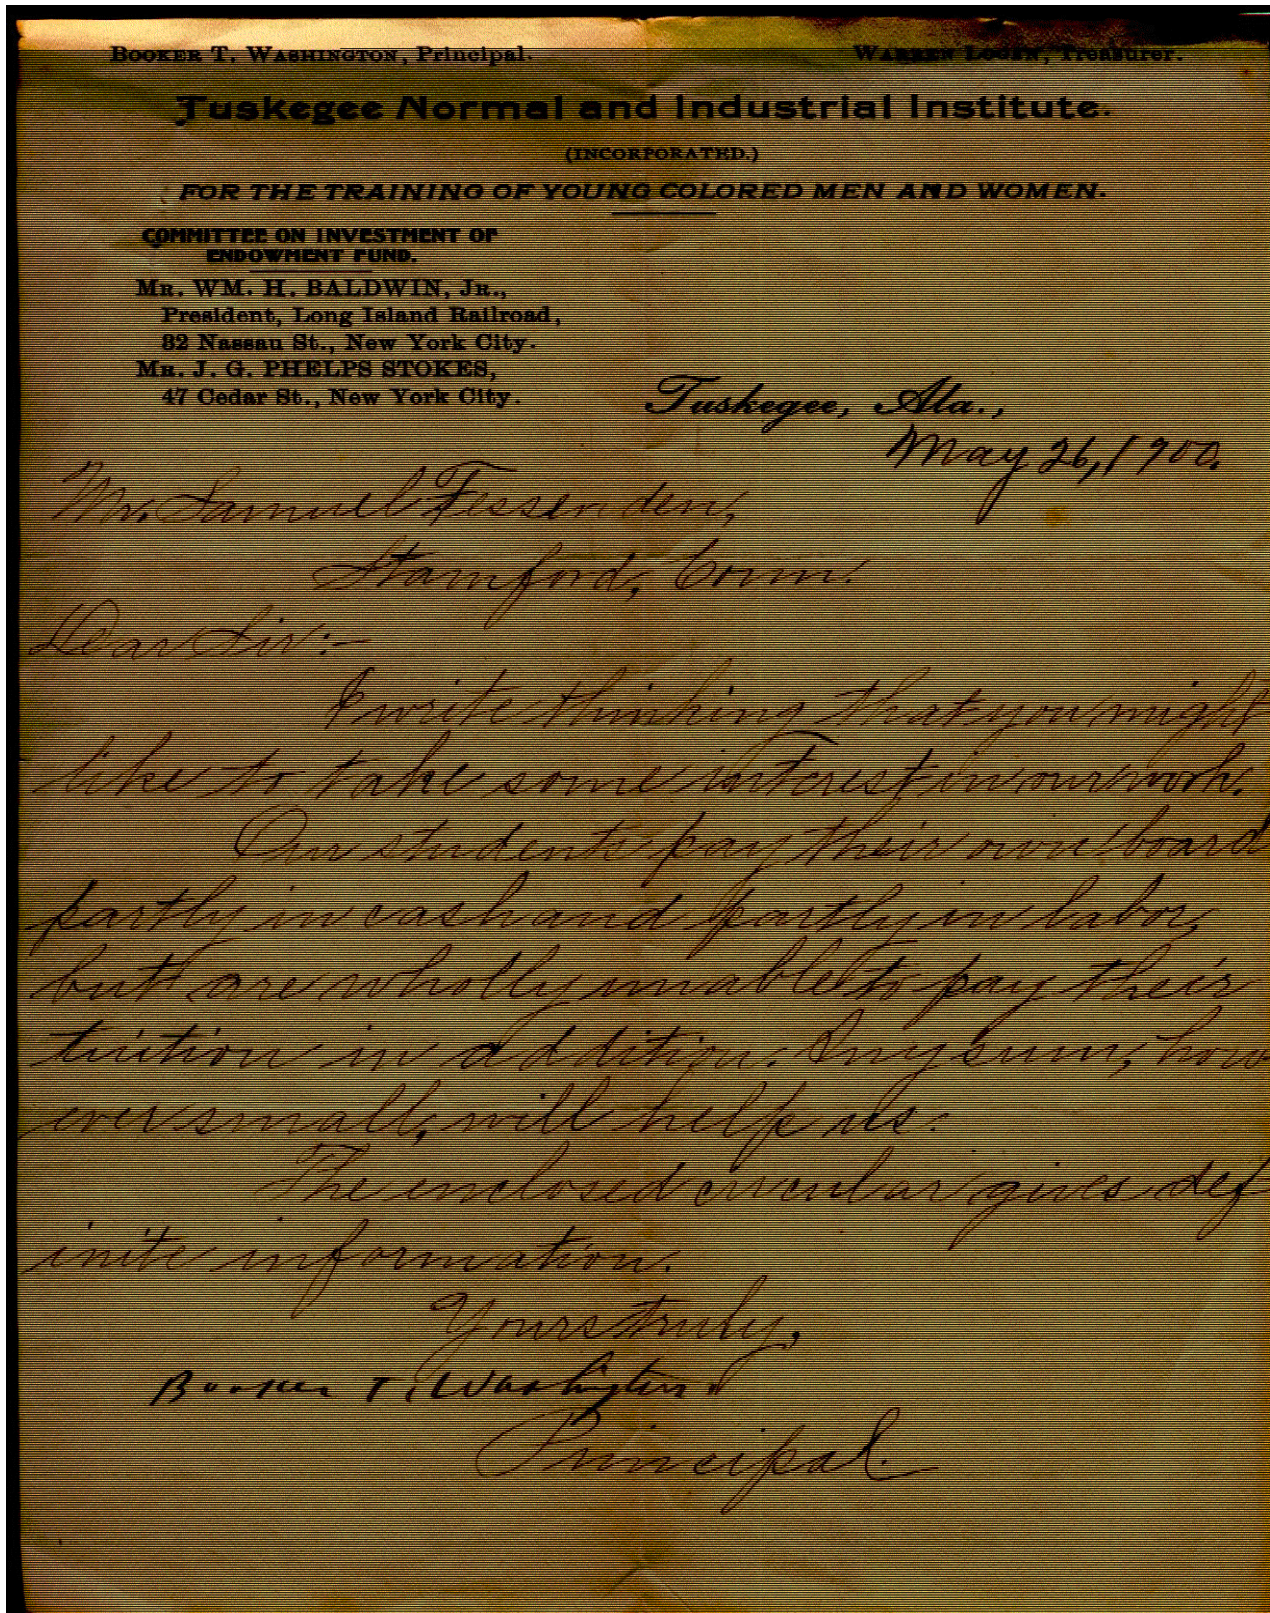 BOOKER T. WASHINGTON, Principal. WARREN LOGAN, Treasurer.
Tuskegee Normal and Industrial Institute.
(INCORPORATED.)
FOR THE TRAINING OF YOUNG COLORED MEN AND WOMEN.
COMMITTEE ON INVESTMENT OF
ENDOWMENT FUND.
MR. WM. H. BALDWIN, JR.,
President, Long Island Railroad,
82 Nassau St., New York City.
MR. J. G. PHELPS STOKES,
47 Cedar St., New York City.
Tuskegee, Ala.,
May 26, 1900.
Mr. Samuel Fessenden,
Stamford, Conn.
Dear Sir:-
I write thinking that you might
like to take some interest in our work.
Our students pay their own board
partly in cash and partly in labor,
but are wholly unable to pay their
tuition in addition. Any sum, how
ever small, will help us.
The enclosed circular gives def
inite information.
Yours truly,
Booker T. Washington.
Principal.